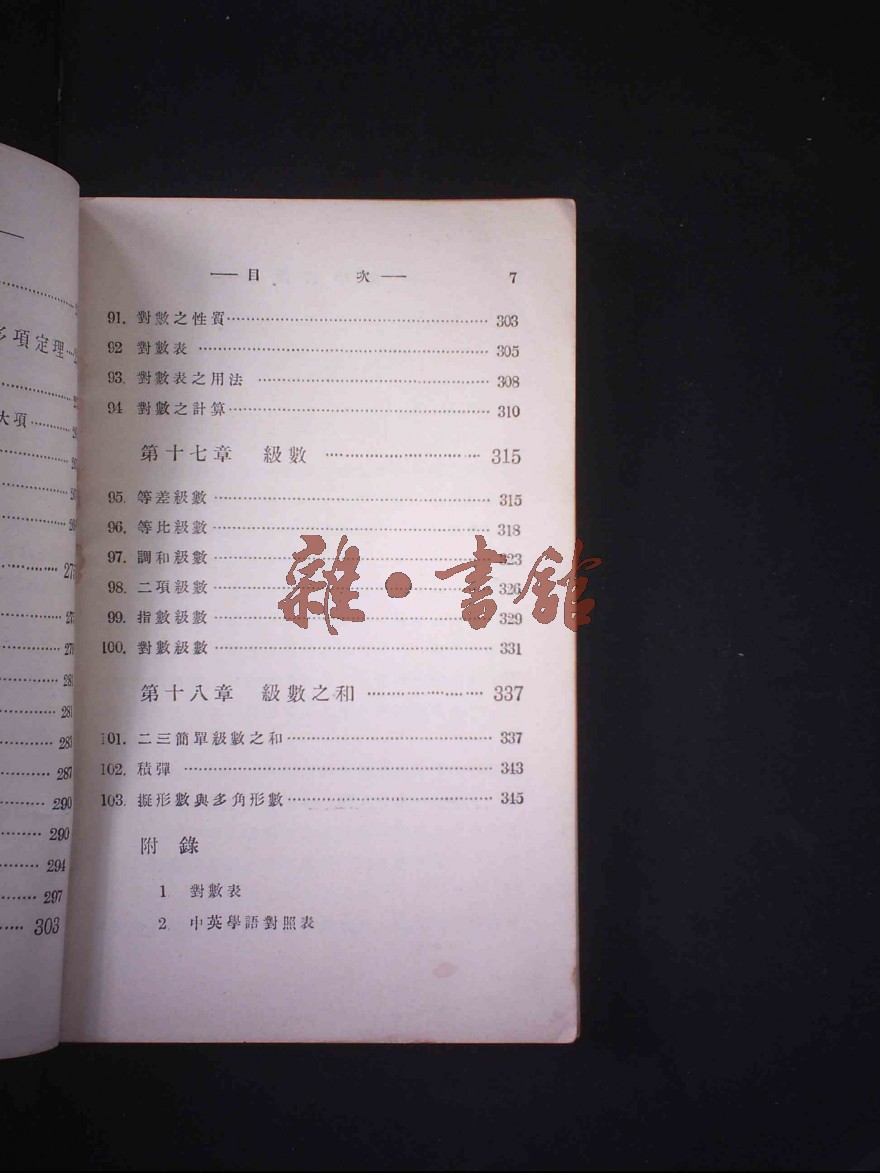 多項定理
大項
275
279
281
281
287
287
290
290
294
297
303
— 目 次 — 7
91. 對數之性質 303
92 對數表 305
93. 對數表之用法 308
94 對數之計算 310
第十七章 級數 315
95. 等差級數 315
96. 等比級數 318
97. 調和級數 323
98. 二項級數 326
99. 指數級數 329
100. 對數級數 331
第十八章 級數之和 337
101. 二三簡單級數之和 337
102. 積彈 343
103. 擬形數與多角形數 345
附錄
1. 對數表
2. 中英學語對照表
雜·書館